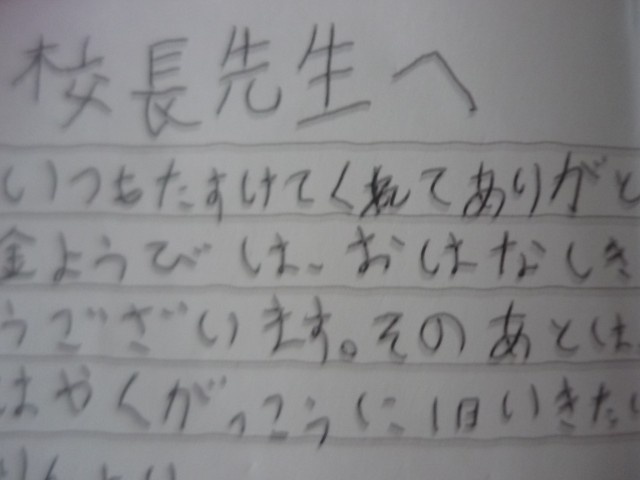 校長先生へ
いつもたすけてくれてありがと
金ようびは、おはなしき
うございます。そのあとは、
はやくがっこうに1日いきたい